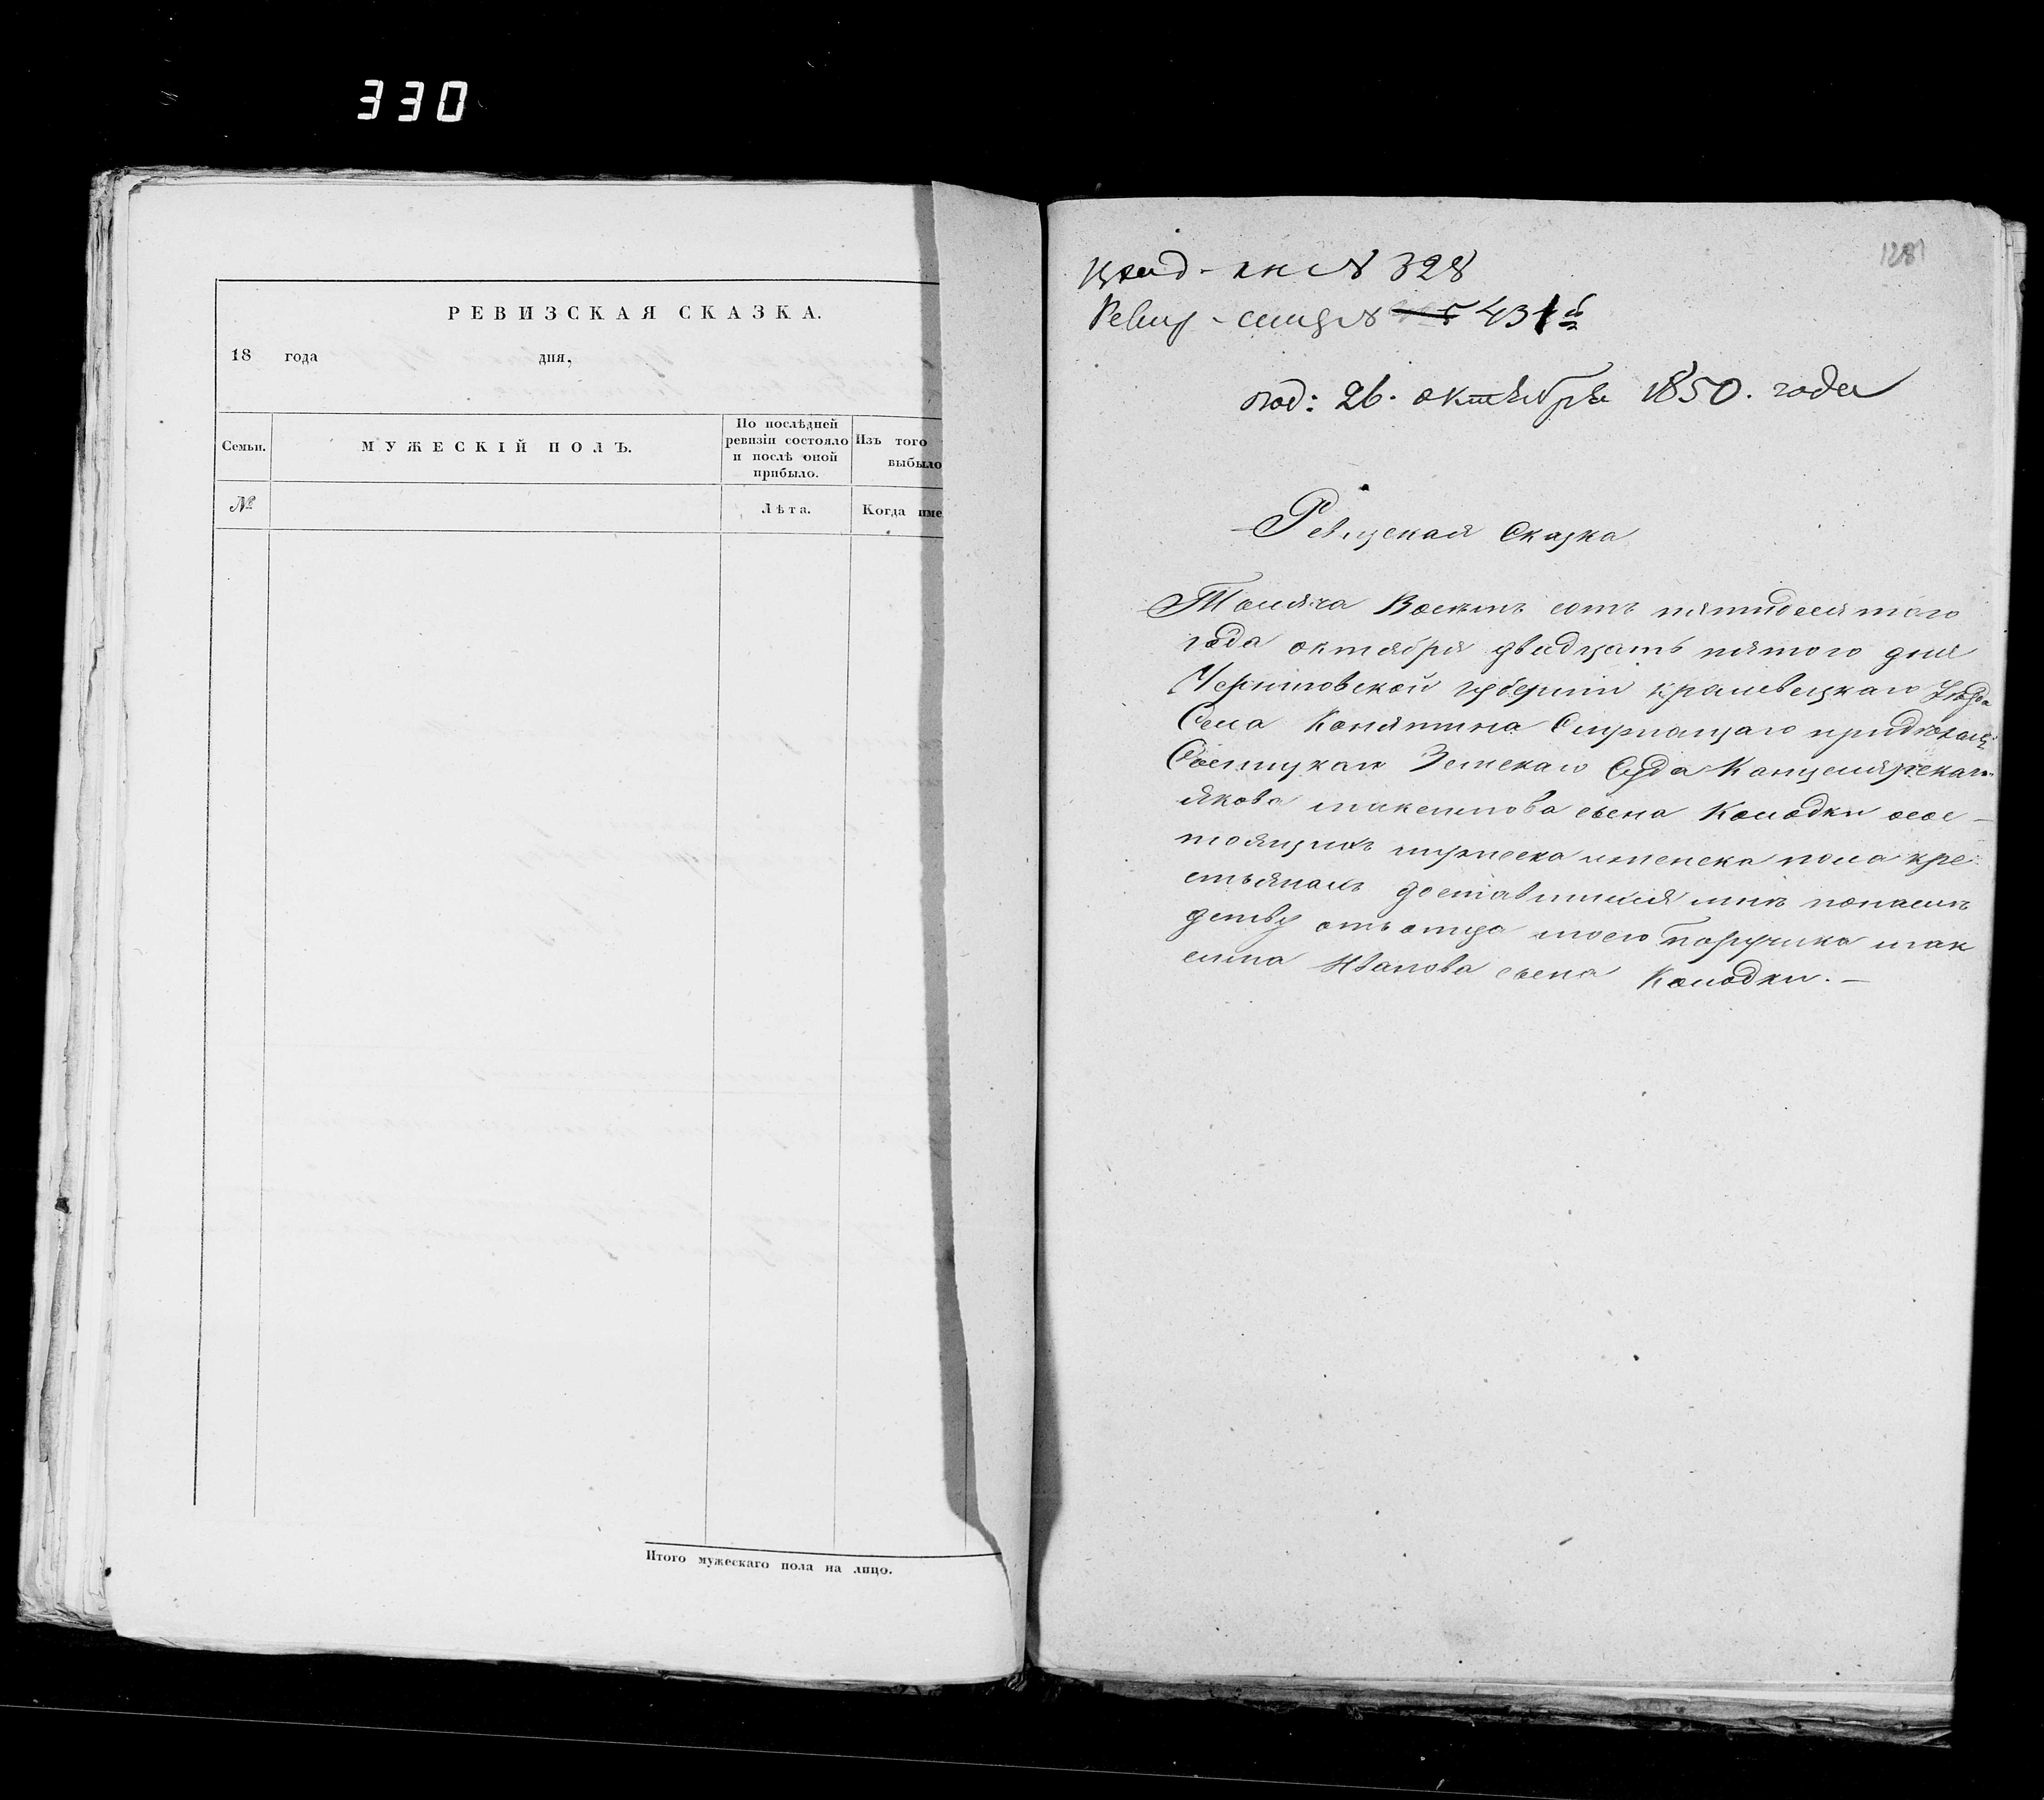 330
РЕВИЗСКАЯ СКАЗКА.
18 года дня,
Семьи.
МУЖЕСКІЙ ПОЛЪ.
По послѣдней
ревизіи состояло
и послѣ оной
прибыло.
Изъ того
выбыло
№
Лѣта.
Когда име
Итого мужескаго пола на лицо.
1281
кн № 328
Ревиз - № 431
под: 26. октября 1850. года
Ревизская Сказка
Тысяча Восемь сотъ пятидесятаго
года октября двадцать пятого дня
Черниговской губерніи Кролевецкаго Уезда
Села Конятина Служащаго
Земскаго Суда Канцелярскаго
якова максимова сына Колодки осос-
тоящихъ мужеска иженска пола кре
стьянахъ доставшихся мнѣ понаслѣ
детву отъ отца моего Поручика мак
сима Иванова сына Колодки. —